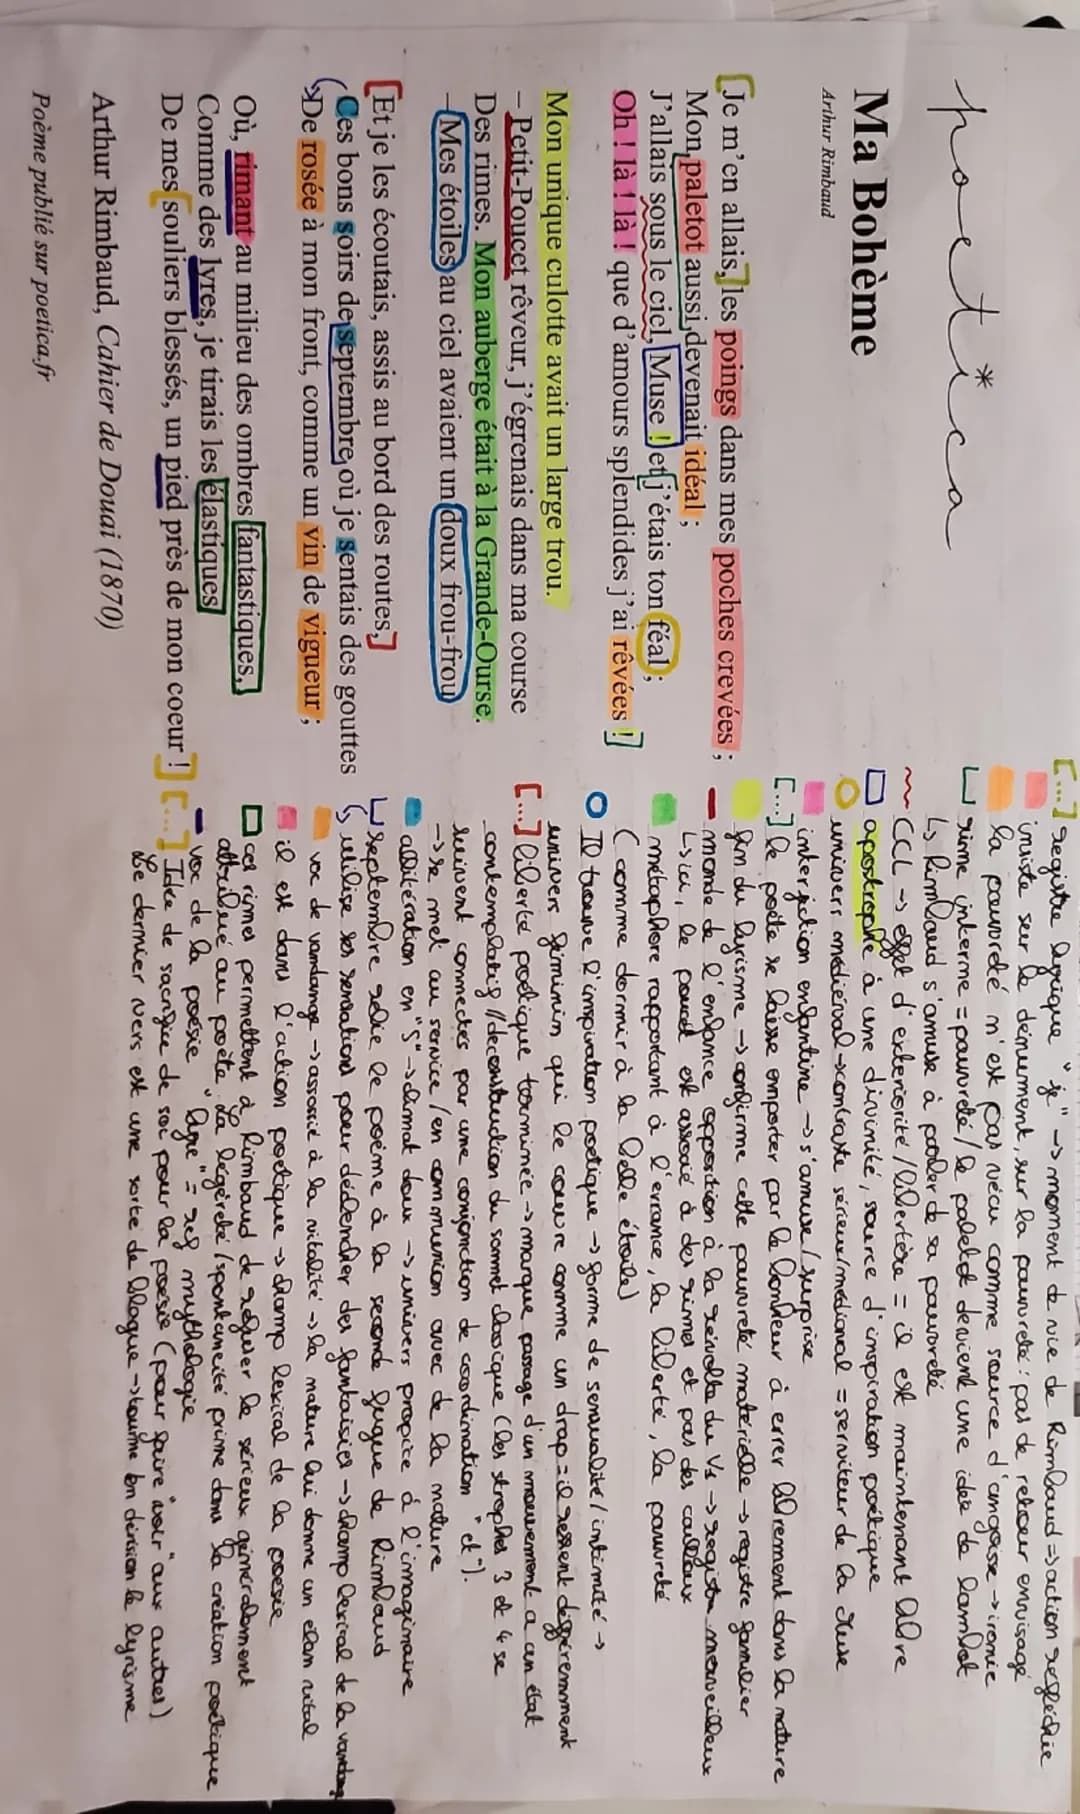 poetica
Ma Bohème
Arthur Rimbaud
Je m'en allais, les poings dans mes poches crevées ;
Mon paletot aussi devenait idéal ;
J'allais sous le ciel, Muse ! et j'étais ton féal ;
Oh ! là ! là ! que d'amours splendides j'ai rêvées !
Mon unique culotte avait un large trou.
– Petit-Poucet rêveur, j'égrenais dans ma course
Des rimes. Mon auberge était à la Grande-Ourse.
– Mes étoiles au ciel avaient un doux frou-frou
Et je les écoutais, assis au bord des routes,
Ces bons soirs de septembre où je sentais des gouttes
De rosée à mon front, comme un vin de vigueur ;
Où, rimant au milieu des ombres fantastiques,
Comme des lyres, je tirais les élastiques
De mes souliers blessés, un pied près de mon coeur !
Arthur Rimbaud, Cahier de Douai (1870)
Poème publié sur poetica.fr
[...] registre lyrique "je" -> moment de vie de Rimbaud => action réfléchie
insiste sur le dénuement, sur la pauvreté : pas de retour envisagé
la pauvreté n'est pas vécu comme source d'angoisse -> ironie
rime interne = pauvreté / le paletot devient une idée de
↳ Rimbaud s'amuse à parler de sa pauvreté
CCL -> effet d'extériorité / = il est maintenant libre
apostrophe à une divinité, source d'inspiration poétique
univers médiéval -> contraste sérieux/ = serviteur de la Muse
interjection enfantine -> s'amuse / surprise
[...] le poète se laisse emporter par le bonheur à errer librement dans la nature
fin du lyrisme -> confirme cette pauvreté matérielle -> registre familier
monde de l'enfance opposition à la révolte du V1 -> registre merveilleux
↳ ici, le poucet est associé à des rimes et pas des cailloux
métaphore rapportant à l'errance, la liberté, la pauvreté
(comme dormir à la belle étoile)
Il trouve l'inspiration poétique -> forme de sensualité / intimité ->
univers féminin qui le couvre comme un drap = il ressent différemment
[...] liberté poétique terminée -> marque passage d'un mouvement a un état
contemplatif // deconstruction du sonnet classique (les strophes 3 et 4 se
suivent connectés par une conjonction de coordination "et").
-> se met au service / en communion avec de la nature
allitération en "s" -> climat doux -> univers propice à l'imaginaire
septembre relie le poème à la seconde fugue de Rimbaud
utilise ses sensations pour déclencher des fantaisies -> champ lexical de la
voc de vandange -> associé à la vitalité -> la nature lui donne un élan vital
il est dans l'action poétique -> champ lexical de la poésie
ces rimes permettent à Rimbaud de refuser le sérieux généralement
attribué au poète. La légèreté / spontanéité prime dans la création poétique
voc de la poésie "lyre" = ref mythologie
[...] Idée de sacrifice de soi pour la poésie (pour faire "voir" aux autres)
le dernier vers est une sorte de blague -> tourne en dérision le lyrisme